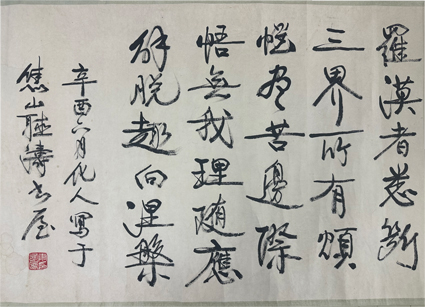 羅漢者悉斷
三界所有煩
惱尽苦邊際
悟無我理随應
解脱趣向涅槃
辛酉六月化人寫于
焦山聽濤书屋